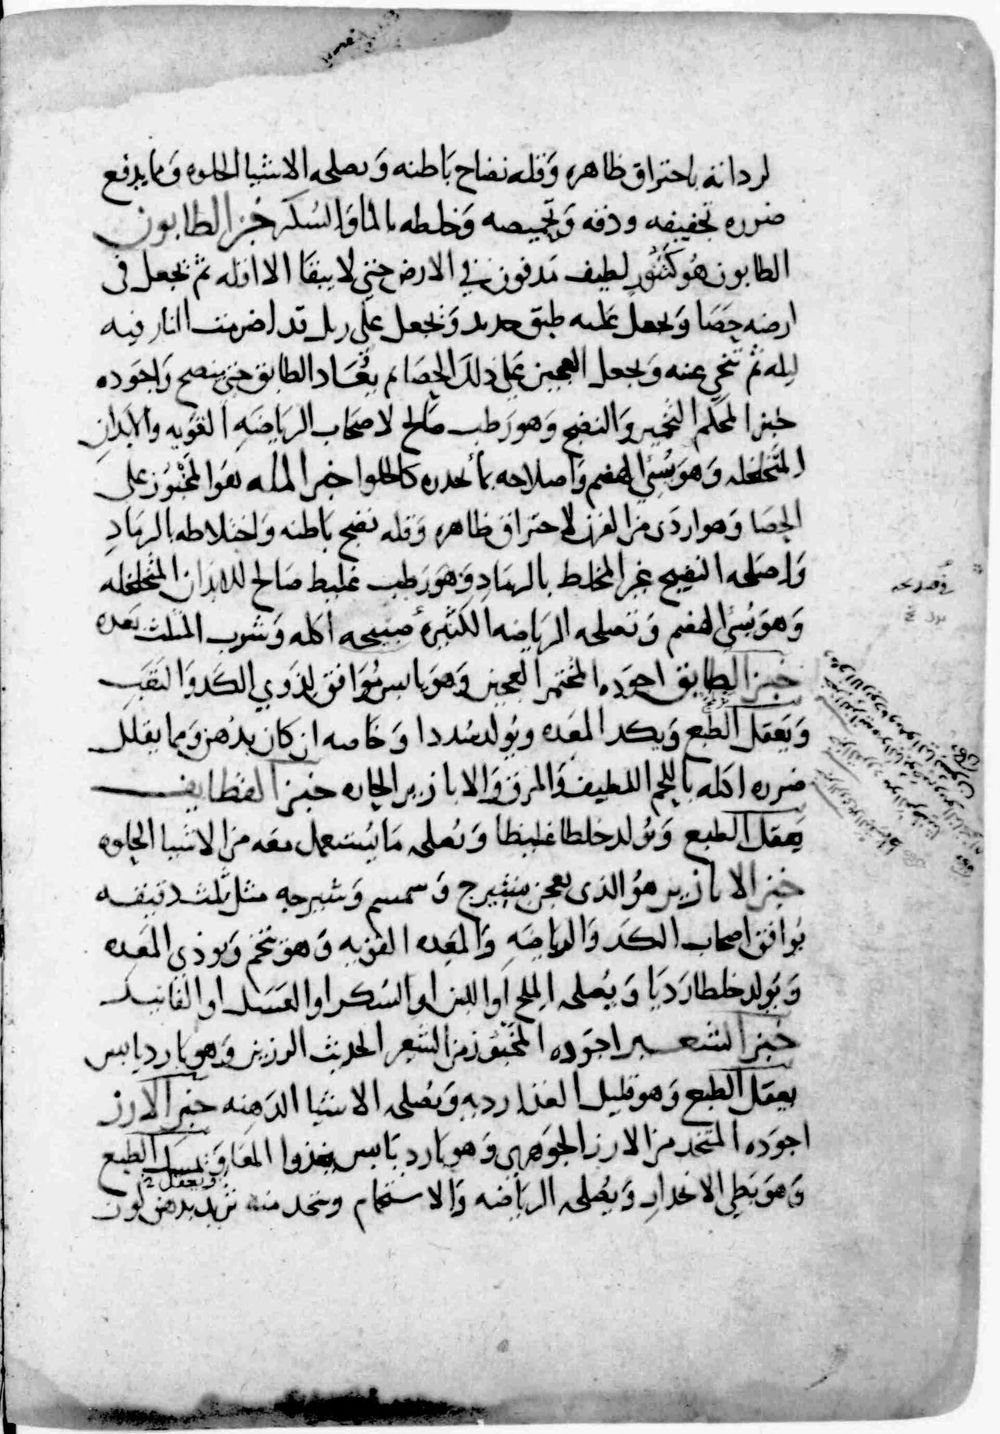 لرداته باحتراق ظاهره وقله نضاج باطنه ويصلحه الاشيا الحلوه ومما يدفع
ضرره تجفيفه ودقه وتحميصه وخلطه بالما والسكر خبز الطابون
الطابون هو كتنور لطيف مدفون في الارض حتى لا يبقا الا اقله ثم يجعل في
ارضه حصا ويجعل عليه طبق حديد ويجعل على زبل قد اضرمت النار فيه
ليله ثم تنحى عنه ويجعل العجين على ذلك الحصا ثم يعاد الطابق حتى ينضج واجوده
خبز المحكم التخمير والنضج وهو رطب صالح لاصحاب الرياضه القويه والابدان
المتخلخله وهو بسئ الهضم واصلاحه بما يحدره كالحلوا خبز المله هو المخبوز على
الحصا وهو اردى من الفرن لاحتراق ظاهره وقله نضج باطنه واختلاطه بالرماد
واصلحه النضيج غير المخلط بالرماد وهو رطب غليظ صالح للابدان المتخلخله
وهو بسئ الهضم وتصلحه الرياضه الكثيره صبيحه اكله وشرب المثلث بعده
خبز الطابق اجوده المختمر العجين وهو يابس يوافق لذوي الكد والتعب
ويعقل الطبع ويكد المعده ويولد سددا وخاصه ان كان بدهن ومما يقلل
ضرره اكله باللحم اللطيف والمرق والابازير الحاره خبز القطايف
يعقل الطبع ويولد خلطا غليظا ويصلحه ما يستعمل معه من الاشيا الحلوه
خبز الابازير هو الذي يعجن بشيرج وسمسم وشيرجه مثل ثلث دقيقه
يوافق اصحاب الكد والرياضه والمعده القويه وهو يتخم ويوذي المعده
ويولد خلطا رديا ويصلحه الملح او اللبن او السكر او العسل او الفانيد
خبز الشعير اجوده المخبوز من الشعير الحديث الرزين وهو بارد يابس
يعقل الطبع وهو قليل الغذا رديه ويصلحه الاشيا الدهنه خبز الارز
اجوده المتخذ من الارز الجوهري وهو بارد يابس يغذوا المعا ويمسك الطبع
ويعقل
وهو بطي الانحدار ويصلحه الرياضه والاستحمام ويتخذ منه ثريد بدهن لوز